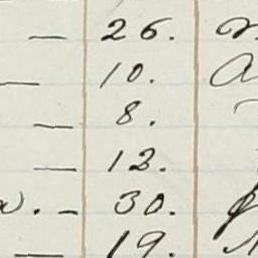 — 26.
— 10.
— 8.
— 13.
. – 30.
— 19.